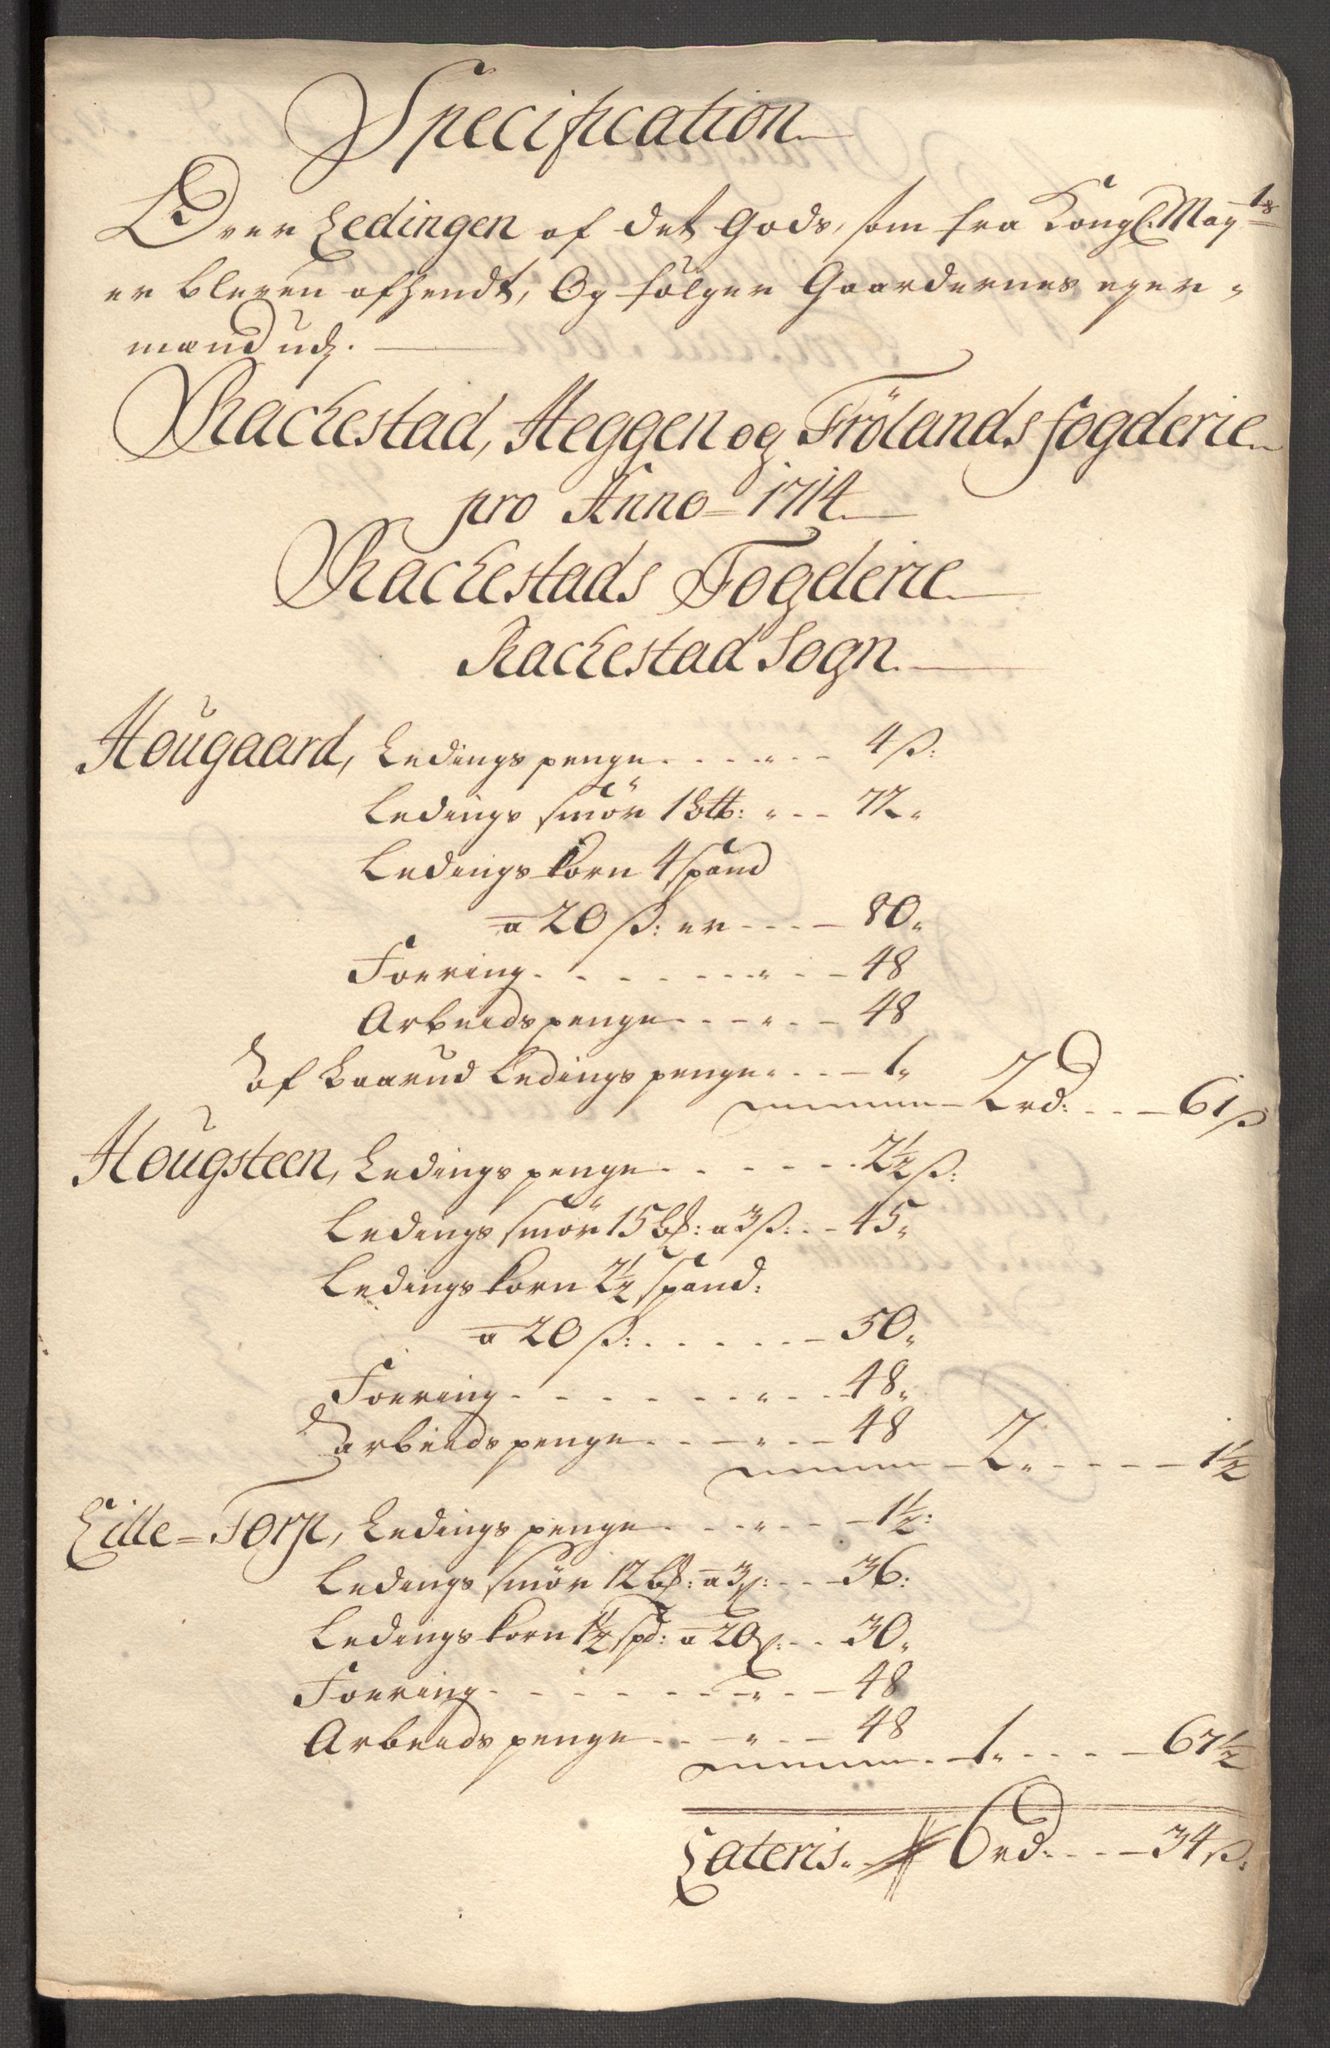 Specification
Over Ledingen af det Gods, som fra Kongl. Mayts
er bleven afhendt, Og følger Gaardernes eyer-
mænd udj.
Rackestad, Heggen og Frölands fogderie
pro Anno 1714
Rackestads Fogderie
Rackestad Sogn
Hougaard, Ledings penge 4 ß:
Ledings smör 1 btt: 72
Ledings korn 4 spand
a 20 ß: er 80
Foering 48
Arbeids penge 48
af Laarud Ledings penge 1 2 rd: 61 ß
Hougsteen, Ledings penge 2½ ß:
Ledings smör 15 bß: a 3 ß: 45
Ledings korn 2½ spand:
a 20 ß: 50
Foering 48
arbeids penge 48 2 1½
Lille=Torp, Ledings penge 1½:
Ledings smör 12 bß: a 3ß: 36:
Ledings korn 1½ spd: a 20ß: 30
Foering 48
Arbeids penge 48 1 67½
Lateris 6 rd 34 ß: